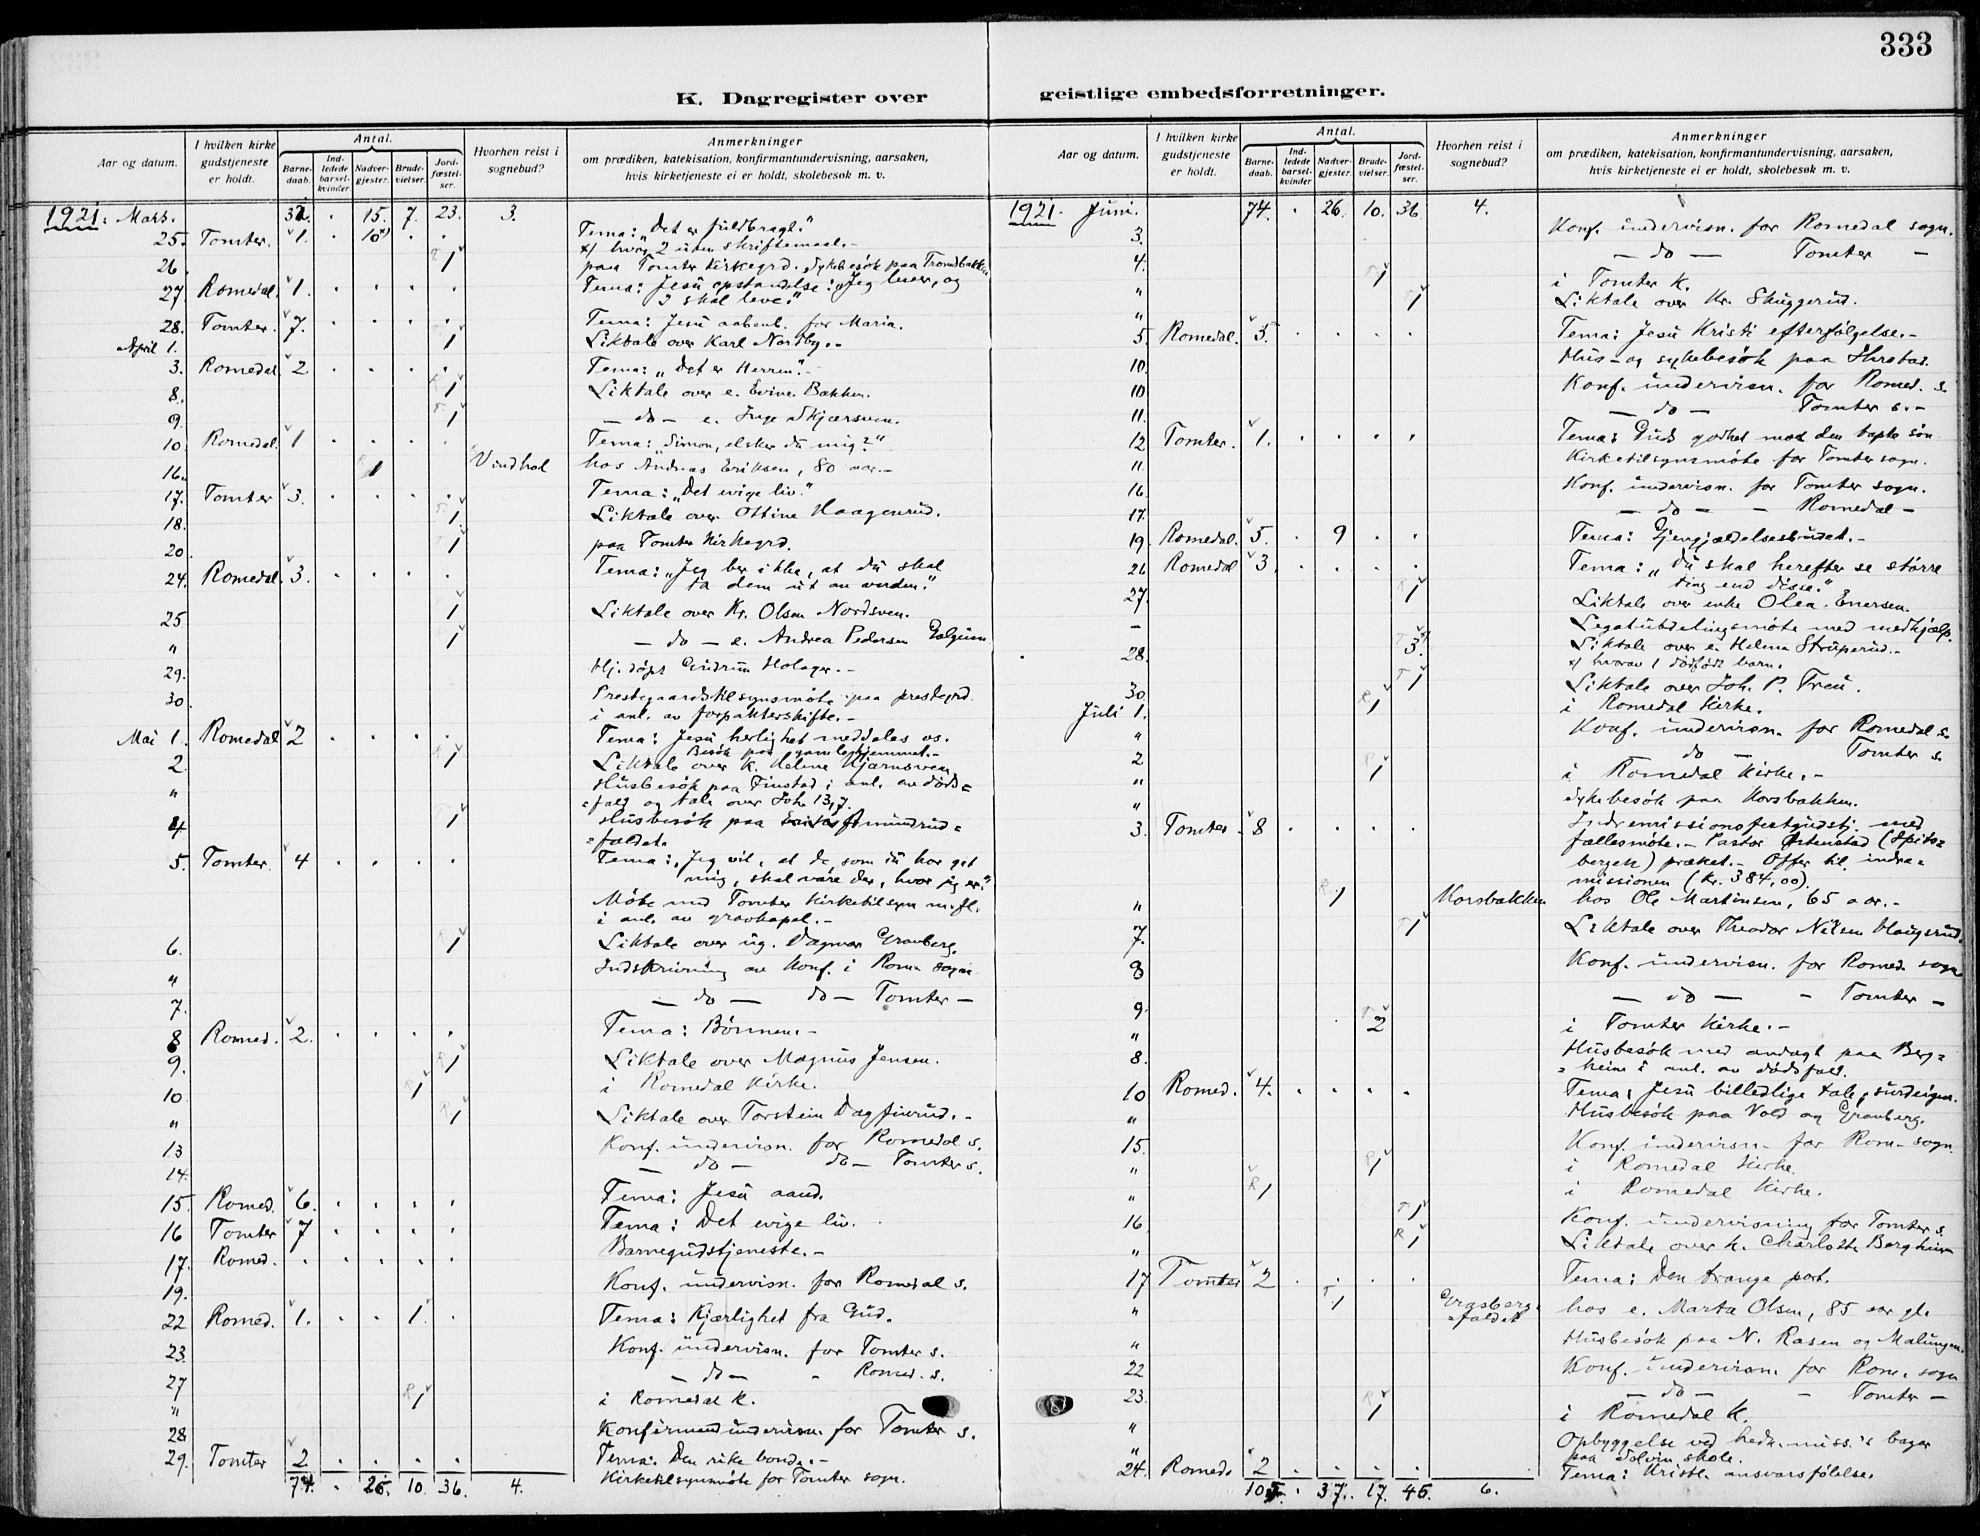 333
K. Dagregister over geistlige embedsforretninger.
Aar og datum.
I hvilken kirke gudstjeneste er holdt.
Antal.
Barne-daab.
Ind-ledede barsel-kvinder
Nadver-gjester.
Brude-vielser.
Jord-fæstel-ser.
Hvorhen reist i sognebud?
Anmerkninger
om prædiken, katekisation, konfirmantundervisning, aarsaken,
hvis kirketjeneste ei er holdt, skolebesøk m. v.
1921. Mars. 15. 7. 23. 3.
25. Tomter. 1. 10 x) Tema: "Det er fuldbragt."
x) hvorav 2 uten skriftemaal.-
26. 1 paa Tomter Kirkegrd. Sykebesøk paa Trondbakken
27 Romedal. 1. Tema: Jesu opstandelse: "Jeg lever, og
I skal leve."
28. Tomter. 7. Tema: Jesu aabenb. for Maria.
April 1. 1 Liktale over Karl Nordby.-
3. Romedal 2 Tema: "Det er Herren".-
8. 1 Liktale over e. Eveine Bakken.
9. 1 — do — e. Inge Skjærsven.
10 Romedal. 1 Tema: "Simon, elsker du mig?"
16. 1 Vindhol hos Andreas Eriksen, 80 aar.-
17. Tomter 3. Tema: "Det evige liv."
18. 1 Liktale over Ottine Haagenrud.
20. 1 paa Tomter Kirkegrd.
24. Romedal. 3. Tema: "Jeg ber ikke, at du skal
ta dem ut av verden."
25 1 Liktale over Kr. Olsen Nordsven.
" 1 — do — e. Andrea Pedersen
29. Hj. døpt Gudrun Holager.-
30. Prestegaardstilsynsmøte paa prestegrd.
i anl. av forpakterskifte.-
Mai 1. Romedal 2 Tema: Jesu herlighet meddeles os.
Besøk paa gamlehjemmet.-
2. 1 Liktale over k. Helene Hjernsven
" Husbesøk paa Finstad i anl. av døds=
=fald og tale over Joh. 13,7.
4 1 Husbesøk paa
=faldet.
5. Tomter. 4 Tema: "Jeg vil, at de, som du har get
mig, skal være der, hvor jeg er."
Møte med Tomter Kirketilsyn m.fl.
i anl. av gravkapel.-
6. 1 Liktale over ug. Dagmar Granberg.
" Indskrivning av Konf. i Rom. sogn
7. — do — do — Tomter —
8 Romed. 2. Tema: Bønnen.-
9. 1 Liktale over Magnus Jensen.
10 1 i Romedal Kirke.
" 1 Liktale over Torstein Dagfinrud.-
13 Konf. undervisn. for Romedal s.
14. — do — do — Tomter s.
15. Romed. 6. Tema: Jesu aand.
16 Tomter 7 Tema: Det evige liv.
17. Romed. Barnegudstjeneste.-
19. Konf. undervisn. for Romedal s.
22 Romed. 1. 1 Tema: Kjærlighet fra Gud.
23. Konf. undervisn. for Tomter s.
27 — do — - Romed. s.
" 1 i Romedal K.
28 Konfirmandundervisn. for Tomter s.
29. Tomter 2 Tema: Den rike bonde.-
Kirketilsynsmøte for Tomter sogn.
74. 10. 36. 4.
1921. Juni. 74. 26. 10. 36 4.
3. Konf. undervisn. for Romedal sogn.
4. — do — Tomter —
" 1 i Tomter K.
" 1 Liktale over Kr. Skuggerud.
5. Romedal. 5. Tema: Jesu Kristi efterfølgelse.-
10. Hus- og sykebesøk paa
10 Konf. undervisn. for Romed. s.
11. — do — Tomter s.-
12 Tomter. 1. Tema: Guds godhet mod den tapte søn
" Kirketilsynsmøte for Tomter sogn.
16. Konf. undervisn. for Tomter sogn.
17. — do — - Romedal —
19. Romedal. 5. 9 Tema: Gjengjældelsesbudet.-
26 Romedal 3. Tema: "Du skal herefter se større
ting end disse."
27. 1 Liktale over enke Olea Enersen.
- Legatutdelingsmøte med medhjælp.
28. 3 x) Liktale over e. Helena Struperud.-
x) hvorav 1 dødfødt barn.
30. 1 Liktale over Joh. P. Freu.
Juli 1. 1 i Romedal Kirke.
" Konf. undervisn. for Romedal s.
2 do — Tomter s.
" 1 i Romedal Kirke.-
" Sykebesøk paa Korsbakken.
3. Tomter 8 Indremissionsfestgudstj. med
fællesmøte.- Pastor Østenstad (Spits=
bergen) præket.- Offer til indre=
missionen (kr. 384,00).
" 1 Korsbakken hos Ole Martinsen, 65 aar.-
7. 1 Liktale over Theodor Nilsen Haugsrud.
8 Konf. undervisn. for Romed. sogn
9. — do — - Tomter —
" 2 i Tomter Kirke.-
8. Husbesøk med andagt paa Berg=
=heim i anl. av dødsfald.
10 Romed. 4. Tema: Jesu billedlige tale, surdeigen.
" Husbesøk paa Vold og Granberg.
15. Konf. undervisn. for Rom. sogn
" 1 i Romedal Kirke.
" 1 i Romedal Kirke.
16. 1 Konf. undervisning for Tomter s.
" 1 Liktale over k. Charlotte Bergheim
17 Tomter 2 Tema: Den trange port.
" 1 Grasberg=
=faldet hos e. Marta Olsen, 85 aar gl.
" Husbesøk paa N. Rasen og Malungen.
22 Konf. undervisn. for Rom. sogn
23. — do — - Tomter —
" 1 i Romedal K.
" Opbyggelse ved hedn.miss.'s bazar
paa Solvin skole.
24. Romed. 2 Tema: Kristl. ansvarsfølelse.
37. 17. 6.